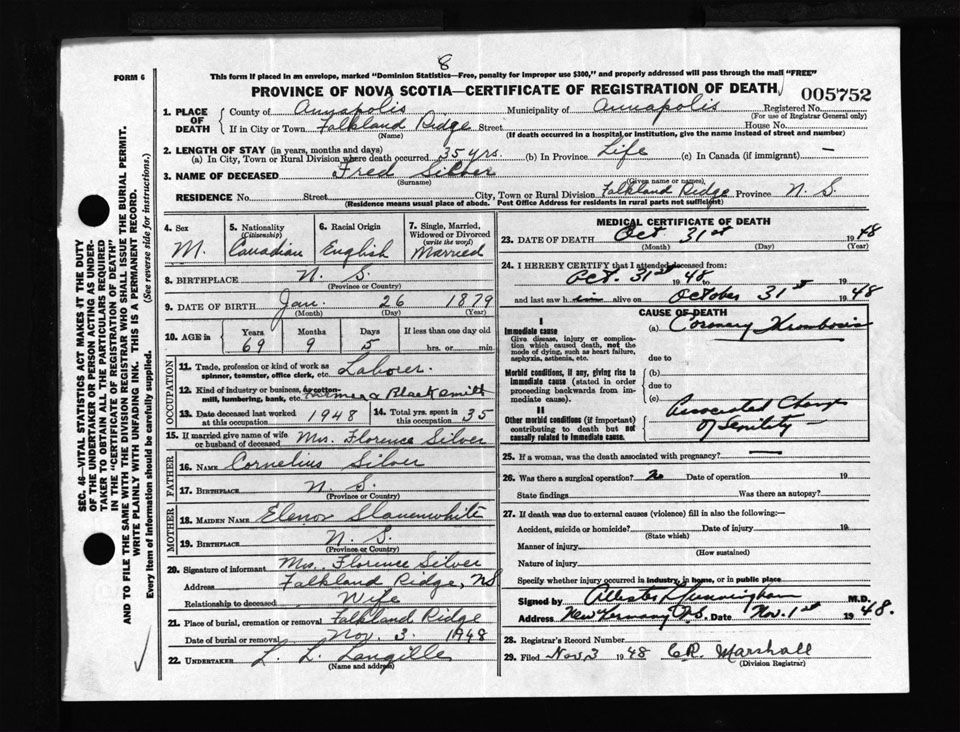 8
FORM 6
This form if placed in an envelope, marked "Dominion Statistics—Free, penalty for improper use $300," and properly addressed will pass through the mail "FREE"
PROVINCE OF NOVA SCOTIA—CERTIFICATE OF REGISTRATION OF DEATH
005752
1. PLACE OF DEATH
County of Annapolis Municipality of Annapolis Registered No.
(For use of Registrar General only)
If in City or Town Falkland Ridge Street House No.
(Name) (If death occurred in a hospital or institution, give the name instead of street and number)
2. LENGTH OF STAY (in years, months and days)
(a) In City, Town or Rural Division where death occurred 35 yrs. (b) In Province Life (c) In Canada (if immigrant) —
3. NAME OF DECEASED Fred Silver
(Surname) (Given name or names)
RESIDENCE No. Street City, Town or Rural Division Falkland Ridge Province N. S.
(Residence means usual place of abode. Post Office Address for residents in rural parts not sufficient)
4. Sex 5. Nationality (Citizenship) 6. Racial Origin 7. Single, Married, Widowed or Divorced (write the word)
M. Canadian English Married
8. BIRTHPLACE N. S.
(Province or Country)
9. DATE OF BIRTH Jan. 26 1879
(Month) (Day) (Year)
10. AGE in Years Months Days If less than one day old
69 9 5 hrs. or min.
OCCUPATION
11. Trade, profession or kind of work as spinner, teamster, office clerk, etc. Laborer.
12. Kind of industry or business, as cotton-mill, lumbering, bank, etc. Farmer & Blacksmith
13. Date deceased last worked at this occupation 1948 14. Total yrs. spent in this occupation 35
15. If married give name of wife or husband of deceased Mrs. Florence Silver
FATHER
16. NAME Cornelius Silver
17. BIRTHPLACE N. S.
(Province or Country)
MOTHER
18. MAIDEN NAME Elenor Slauenwhite
19. BIRTHPLACE N. S.
(Province or Country)
20. Signature of informant Mrs. Florence Silver
Address Falkland Ridge, NS
Relationship to deceased Wife
21. Place of burial, cremation or removal Falkland Ridge
Date of burial or removal Nov. 3. 1948
22. UNDERTAKER L. L. Langille
(Name and address)
MEDICAL CERTIFICATE OF DEATH
23. DATE OF DEATH Oct 31st 1948
(Month) (Day) (Year)
24. I HEREBY CERTIFY that I attended deceased from:
Oct. 31st 1948 to
and last saw him alive on October 31st 1948
CAUSE OF DEATH
I
Immediate cause
Give disease, injury or complication which caused death, not the mode of dying, such as heart failure, asphyxia, asthenia, etc.
(a) Coronary Thrombosis
due to
Morbid conditions, if any, giving rise to immediate cause (stated in order proceeding backwards from immediate cause)
(b)
due to
(c)
II
Other morbid conditions (if important) contributing to death but not causally related to immediate cause.
Associated Changes of Senility
25. If a woman, was the death associated with pregnancy? —
26. Was there a surgical operation? No Date of operation 19
State findings Was there an autopsy?
27. If death was due to external causes (violence) fill in also the following:—
Accident, suicide or homicide? Date of injury 19
(State which)
Manner of injury
(How sustained)
Nature of injury
Specify whether injury occurred in industry, in home, or in public place
Signed by Cunningham M.D.
Address New Germany, N.S. Date Nov. 1st 1948.
28. Registrar's Record Number
29. Filed Nov 3 1948 C.R. Marshall
(Division Registrar)
SEC. 46—VITAL STATISTICS ACT MAKES IT THE DUTY
OF THE UNDERTAKER OR PERSON ACTING AS UNDER-
TAKER TO OBTAIN ALL THE PARTICULARS REQUIRED
IN THE "CERTIFICATE OF REGISTRATION OF DEATH"
AND TO FILE THE SAME WITH THE DIVISION REGISTRAR WHO SHALL ISSUE THE BURIAL PERMIT.
WRITE PLAINLY WITH UNFADING INK. THIS IS A PERMANENT RECORD.
Every item of information should be carefully supplied. (See reverse side for instructions.)